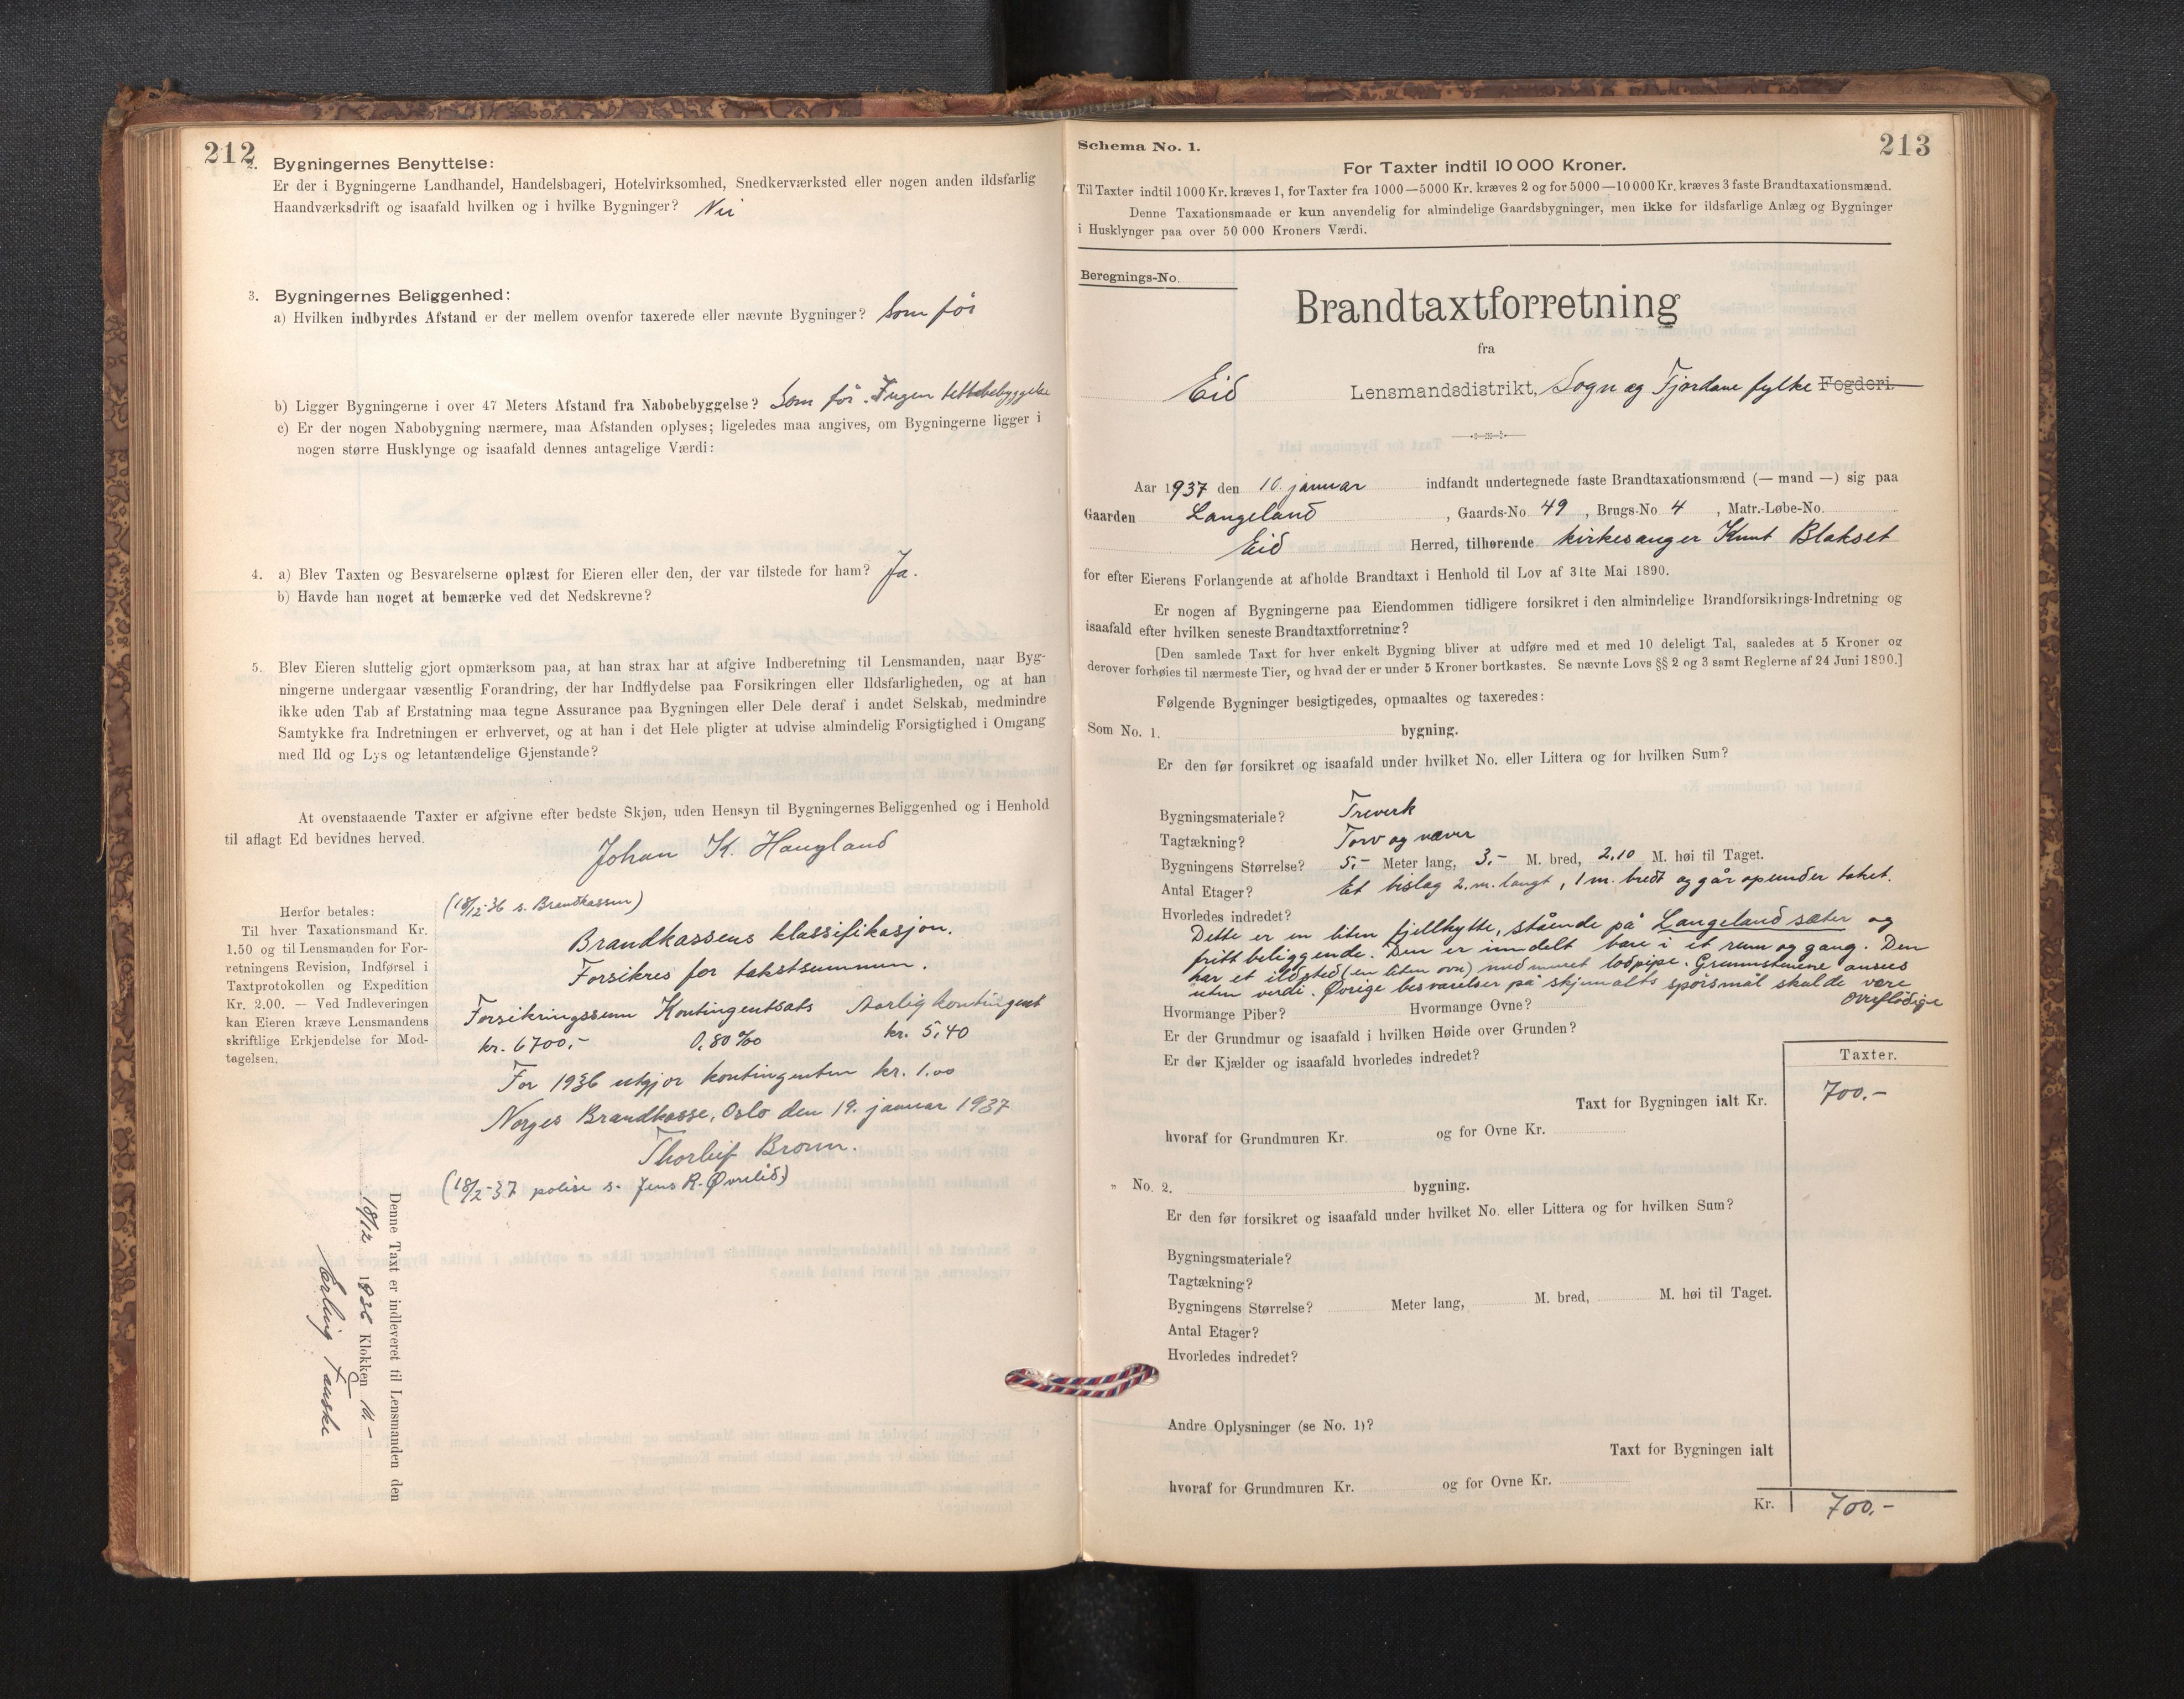 212
2. Bygningernes Benyttelse:
Er der i Bygningerne Landhandel, Handelsbageri, Hotelvirksomhed, Snedkerværksted eller nogen anden ildsfarlig
Haandværksdrift og isaafald hvilken og i hvilke Bygninger? Nei
3. Bygningernes Beliggenhed:
a) Hvilken indbyrdes Afstand er der mellem ovenfor taxerede eller nævnte Bygninger? Som før
b) Ligger Bygningerne i over 47 Meters Afstand fra Nabobebyggelse? Som før. Ingen tettbebyggelse
c) Er der nogen Nabobygning nærmere, maa Afstanden oplyses; ligeledes maa angives, om Bygningerne ligger i
nogen større Husklynge og isaafald dennes antagelige Værdi:
4. a) Blev Taxten og Besvarelserne oplæst for Eieren eller den, der var tilstede for ham? Ja.
b) Havde han noget at bemærke ved det Nedskrevne?
5. Blev Eieren sluttelig gjort opmærksom paa, at han strax har at afgive Indberetning til Lensmanden, naar Byg-
ningerne undergaar væsentlig Forandring, der har Indflydelse paa Forsikringen eller Ildsfarligheden, og at han
ikke uden Tab af Erstatning maa tegne Assurance paa Bygningen eller Dele deraf i andet Selskab, medmindre
Samtykke fra Indretningen er erhvervet, og at han i det Hele pligter at udvise almindelig Forsigtighed i Omgang
med Ild og Lys og letantændelige Gjenstande?
At ovenstaaende Taxter er afgivne efter bedste Skjøn, uden Hensyn til Bygningernes Beliggenhed og i Henhold
til aflagt Ed bevidnes herved.
Johan K. Haugland
Herfor betales:
Til hver Taxationsmand Kr.
1.50 og til Lensmanden for For-
retningens Revision, Indførsel i
Taxtprotokollen og Expedition
Kr. 2.00. — Ved Indleveringen
kan Eieren kræve Lensmandens
skriftlige Erkjendelse for Mod-
tagelsen.
(18/12-36 s. Brandkassen)
Brandkassens klassifikasjon.
Forsikres for takstsummen.
Forsikringssum Kontingentsats Aarlig kontingent
kr. 6700,- 0,80 ‰ kr. 5,40
For 1936 utgjør kontingenten kr. 1.00
Norges Brandkasse, Oslo den 19. januar 1937
Thorleif Broun.
(18/2-37 polise s. Jens R. Øvrelid)
Denne Taxt er indleveret til Lensmanden den
18/12 1936 Klokken 14.-
Erling Fauske
Schema No. 1.
213
For Taxter indtil 10 000 Kroner.
Til Taxter indtil 1000 Kr. kræves 1, for Taxter fra 1000—5000 Kr. kræves 2 og for 5000—10000 Kr. kræves 3 faste Brandtaxationsmænd.
Denne Taxationsmaade er kun anvendelig for almindelige Gaardsbygninger, men ikke for ildsfarlige Anlæg og Bygninger
i Husklynger paa over 50 000 Kroners Værdi.
Beregnings-No.
Brandtaxtforretning
fra
Eid Lensmandsdistrikt, Sogn og Fjordane fylke Fogderi.
Aar 1937 den 10. januar indfandt undertegnede faste Brandtaxationsmænd (— mand —) sig paa
Gaarden Langeland, Gaards-No. 49, Brugs-No. 4, Matr.-Løbe-No.
Eid Herred, tilhørende kirkesanger Knut Blakset
for efter Eierens Forlangende at afholde Brandtaxt i Henhold til Lov af 31te Mai 1890.
Er nogen af Bygningerne paa Eiendommen tidligere forsikret i den almindelige Brandforsikrings-Indretning og
isaafald efter hvilken seneste Brandtaxtforretning?
[Den samlede Taxt for hver enkelt Bygning bliver at udføre med et med 10 deleligt Tal, saaledes at 5 Kroner og
derover forhøies til nærmeste Tier, og hvad der er under 5 Kroner bortkastes. Se nævnte Lovs §§ 2 og 3 samt Reglerne af 24 Juni 1890.]
Følgende Bygninger besigtigedes, opmaaltes og taxeredes:
Som No. 1. bygning.
Er den før forsikret og isaafald under hvilket No. eller Littera og for hvilken Sum?
Bygningsmateriale? Treverk
Tagtækning? Torv og næver
Bygningens Størrelse? 5,- Meter lang, 3,- M. bred, 2,10 M. høi til Taget.
Antal Etager? Et bislag 2. m. langt, 1 m. bredt og går op under taket.
Hvorledes indredet?
Dette er en liten fjellhytte, stående på Langeland sæter og
fritt beliggende. Den er inndelt bare i et rum og gang. Den
har et ildsted (en liten ovn) med muret lodpipe. Grunnstenene ansees
uten verdi. Øvrige besvarelser på skjemaets spørsmål skulde være
overflødige
Hvormange Piber? Hvormange Ovne?
Er der Grundmur og isaafald i hvilken Høide over Grunden?
Er der Kjælder og isaafald hvorledes indredet?
Taxter.
Taxt for Bygningen ialt Kr. 700.-
hvoraf for Grundmuren Kr. og for Ovne Kr.
" No. 2. bygning.
Er den før forsikret og isaafald under hvilket No. eller Littera og for hvilken Sum?
Bygningsmateriale?
Tagtækning?
Bygningens Størrelse? Meter lang, M. bred, M. høi til Taget.
Antal Etager?
Hvorledes indredet?
Andre Oplysninger (se No. 1)?
Taxt for Bygningen ialt
hvoraf for Grundmuren Kr. og for Ovne Kr.
Kr. 700,-